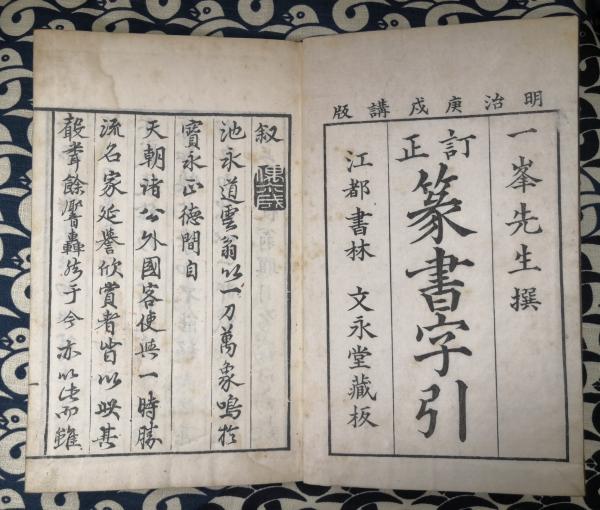 明治庚戌講版
一峯先生撰
訂正
篆書字引
江都書林 文永堂藏板
叙
池永道雲翁以一刀萬象鳴於
寶永正德間自
天朝諸公外國客使與一時勝
流名家延譽欣賞者皆以昳其
餘馨轟然于今亦以決而雖